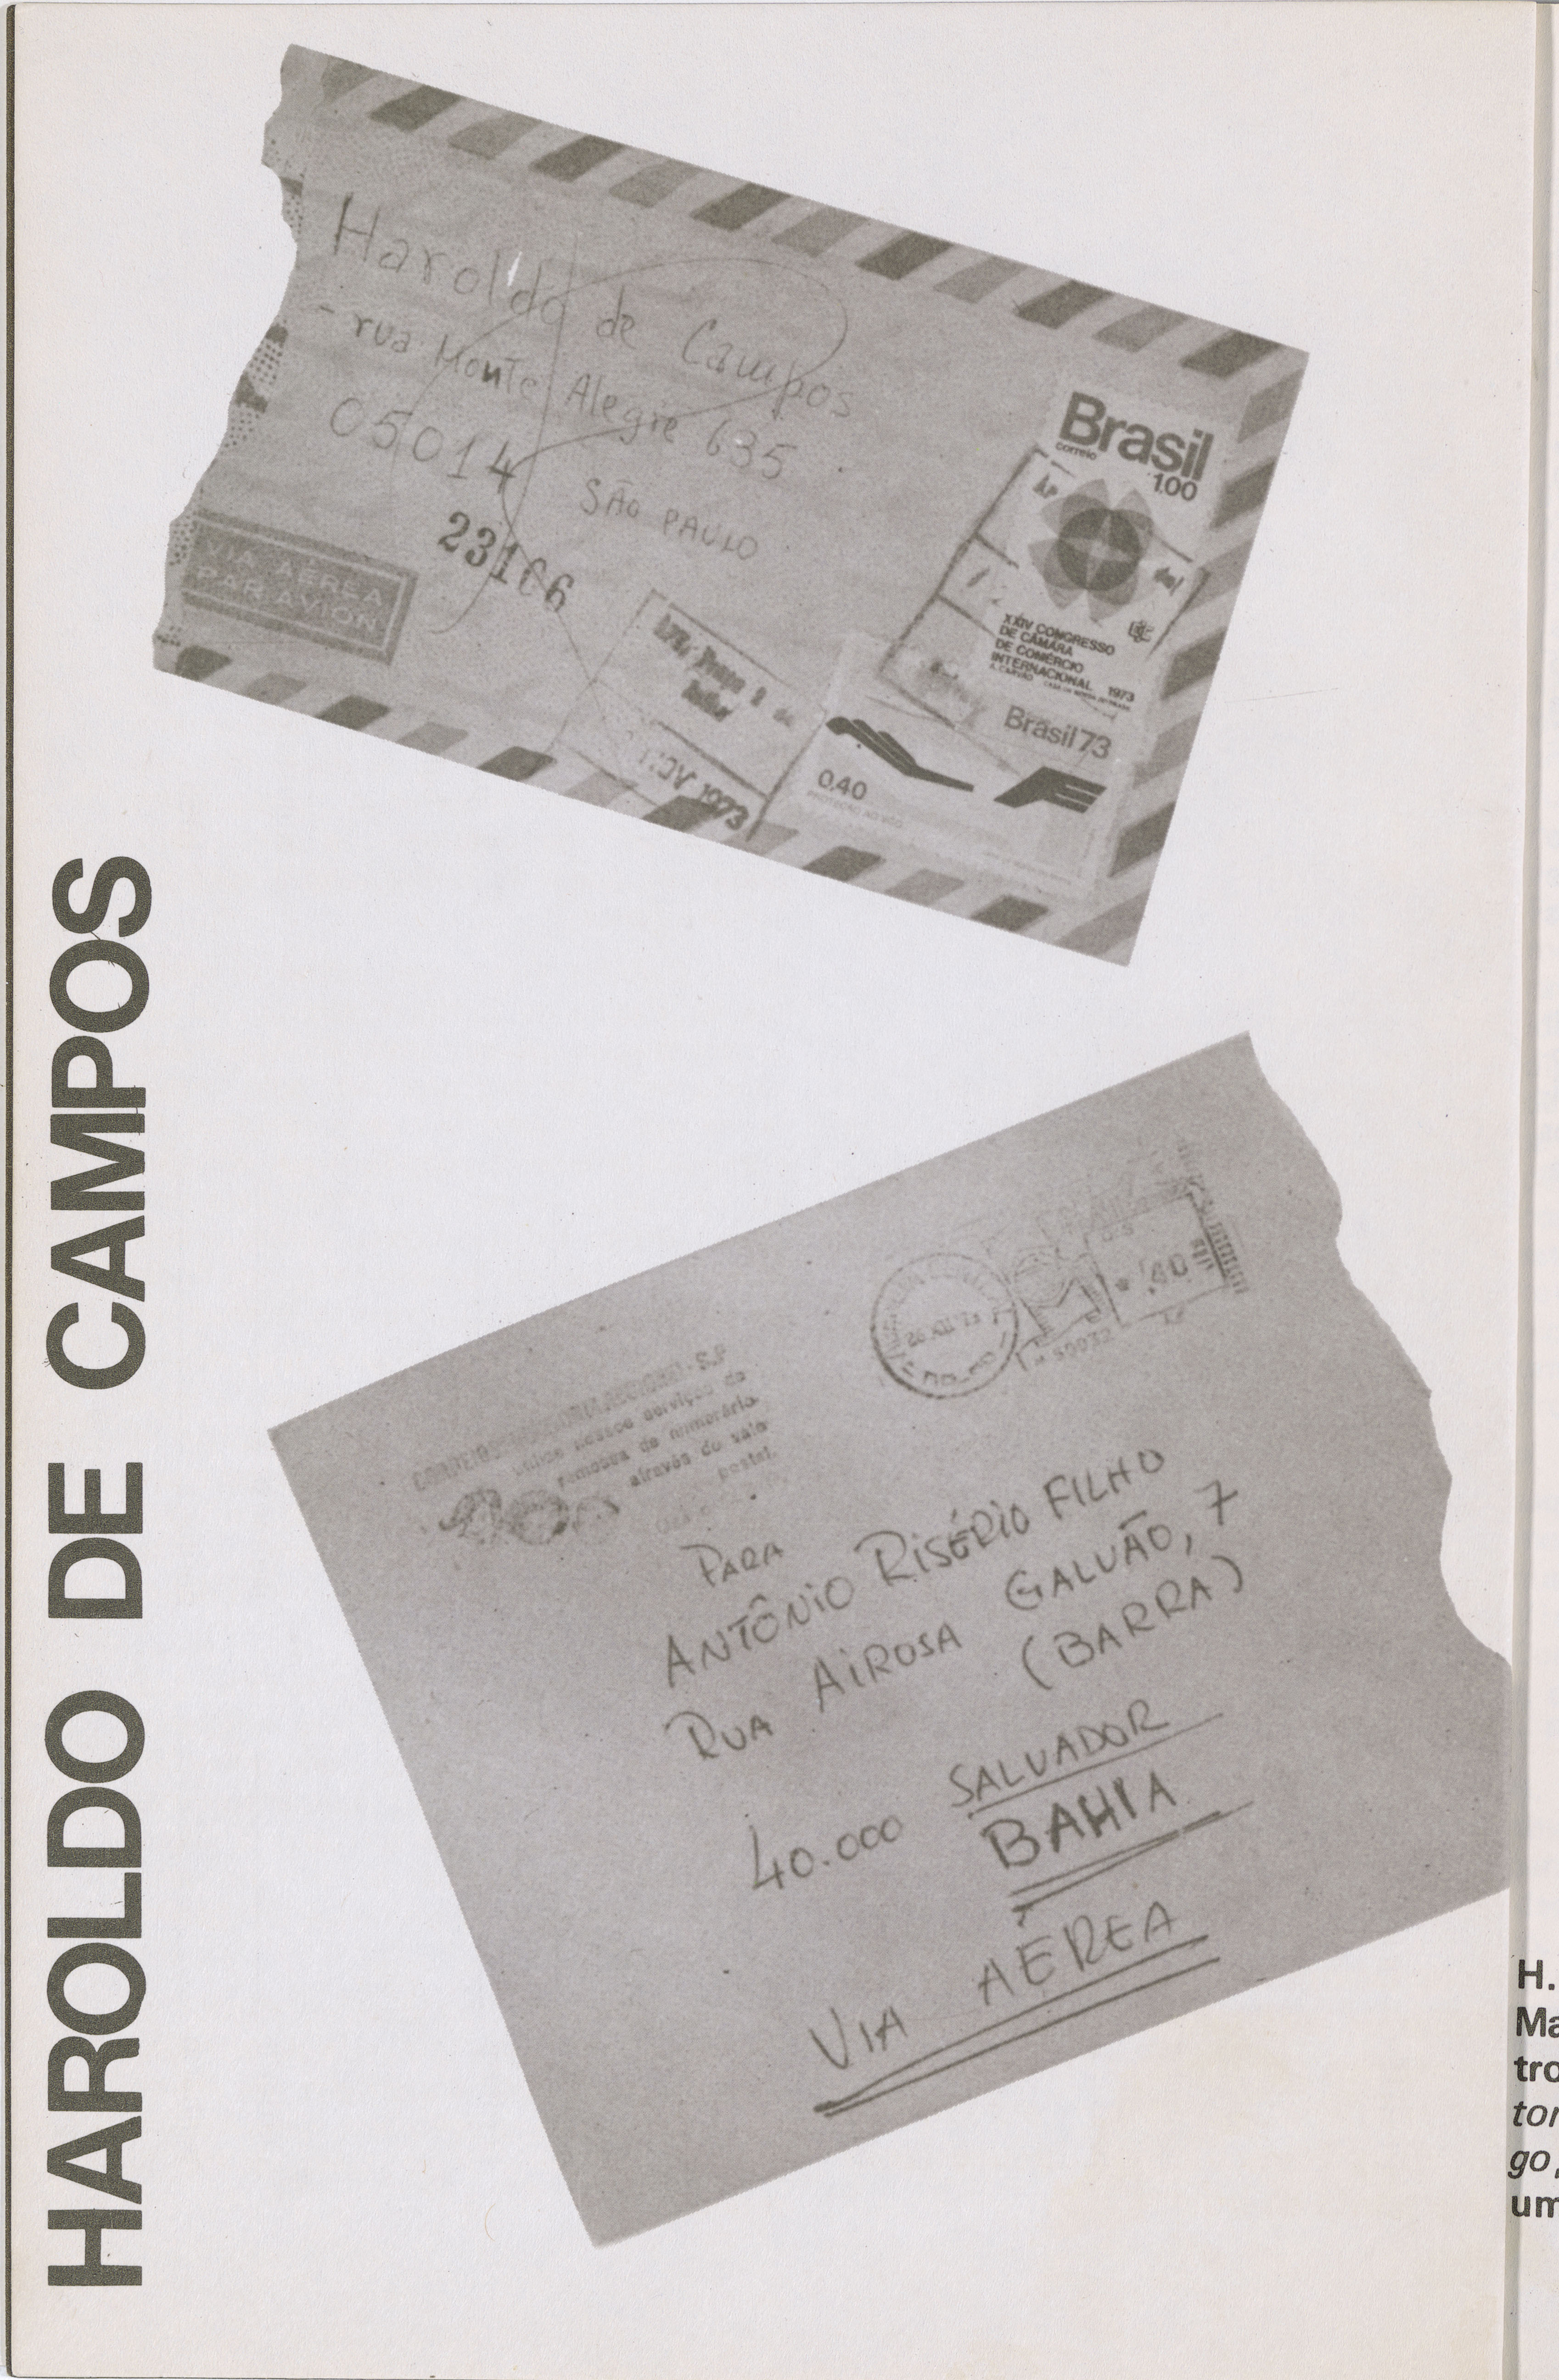 HAROLDO DE CAMPOS
Haroldo de Campos
- rua Monte Alegre 635
05014 SÃO PAULO
23166
VIA AÉREA
PAR AVION
NOV 1973
Brasil
correio
1.00
XXIV CONGRESSO
DE CÂMARA
DE COMÉRCIO
INTERNACIONAL 1973
Brasil 73
0,40
S.P
nossos serviços de
remessa de numerário
através do vale
postal.
40
PARA
ANTÔNIO RISÉRIO FILHO
RUA AIROSA GALVÃO, 7
(BARRA)
40.000 SALVADOR
BAHIA
VIA AÉREA
H.
Ma
tro
tor
go,
um